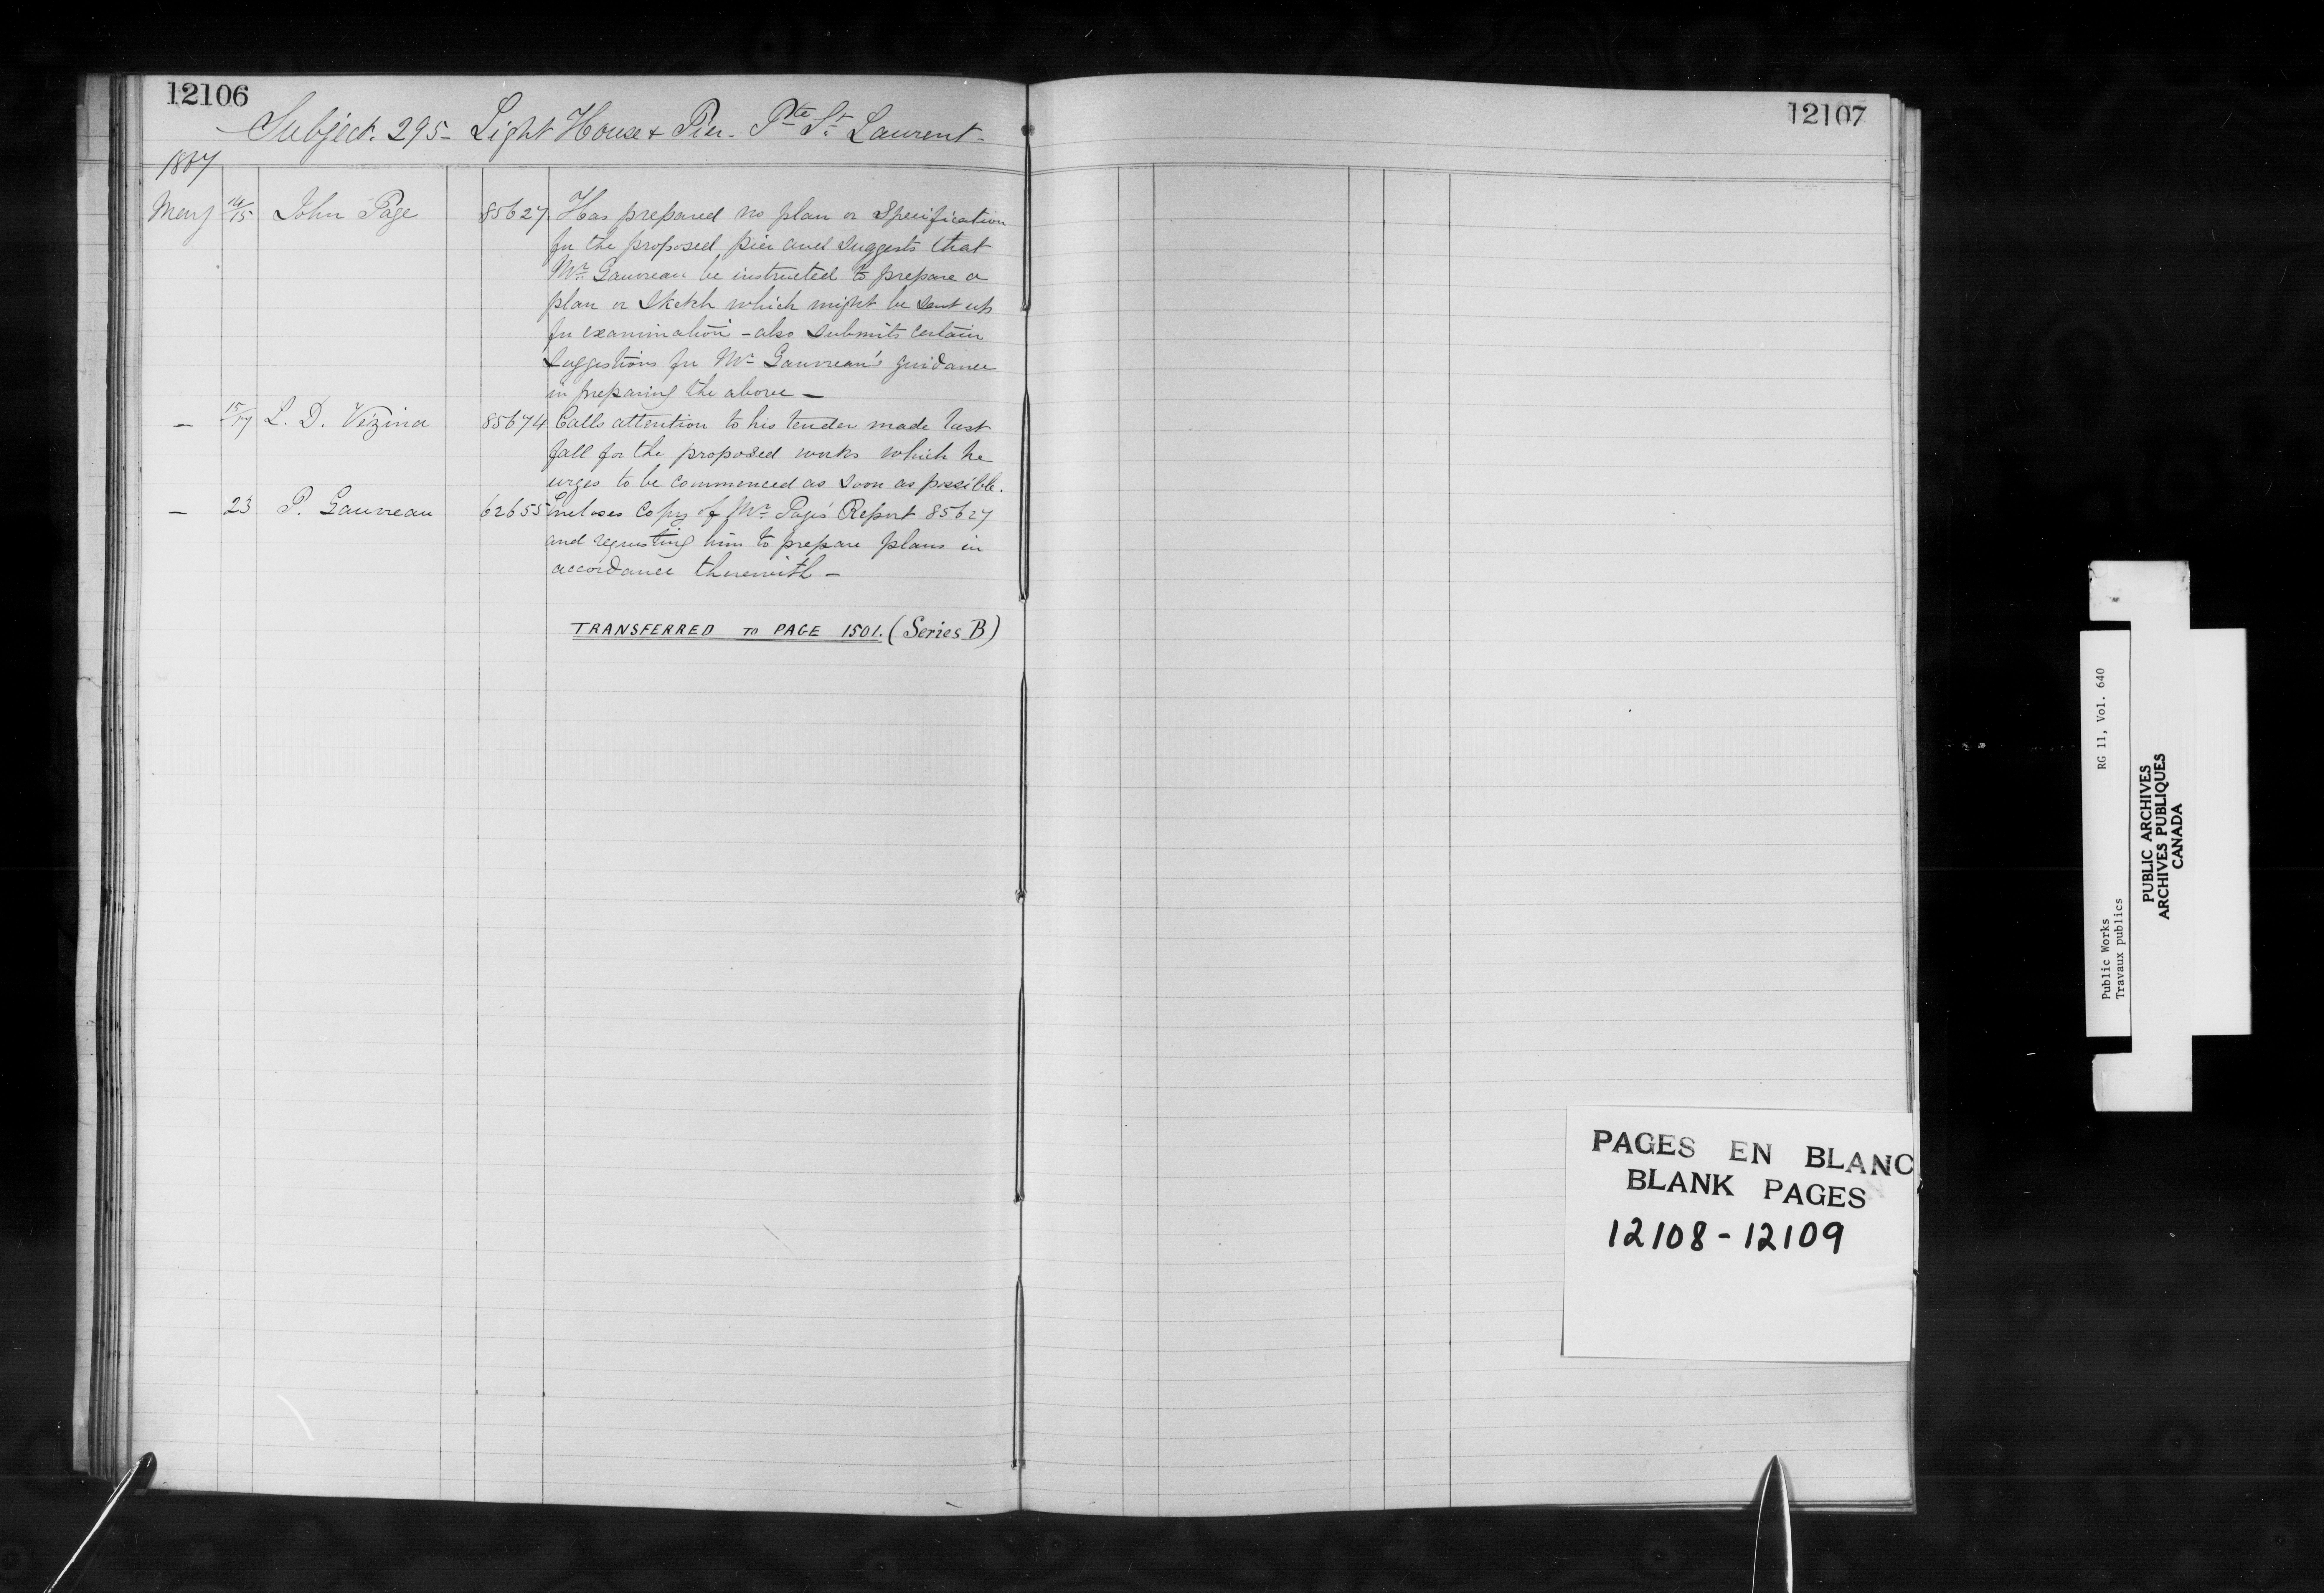 12106
Subject. 295 - Light House & Pier - Pte St. Laurent -
1867
May 14/15 John Page 85627 Has prepared no plan or Specification
for the proposed pier and suggests that
Mr. Gauvreau be instructed to prepare a
plan or Sketch which might be sent up
for examination - also submits certain
suggestions for Mr. Gauvreau's guidance
in preparing the above -
- 15/17 L. D. Vézina 85674 Calls attention to his tender made last
fall for the proposed works which he
urges to be commenced as soon as possible.
- 23 P. Gauvreau 62655 Encloses Copy of Mr. Page's Report 85627
and requesting him to prepare plans in
accordance therewith -
TRANSFERRED TO PAGE 1501. (Series B)
12107
PAGES EN BLANC
BLANK PAGES
12108-12109
Public Works RG 11, Vol. 640
Travaux publics
PUBLIC ARCHIVES
ARCHIVES PUBLIQUES
CANADA